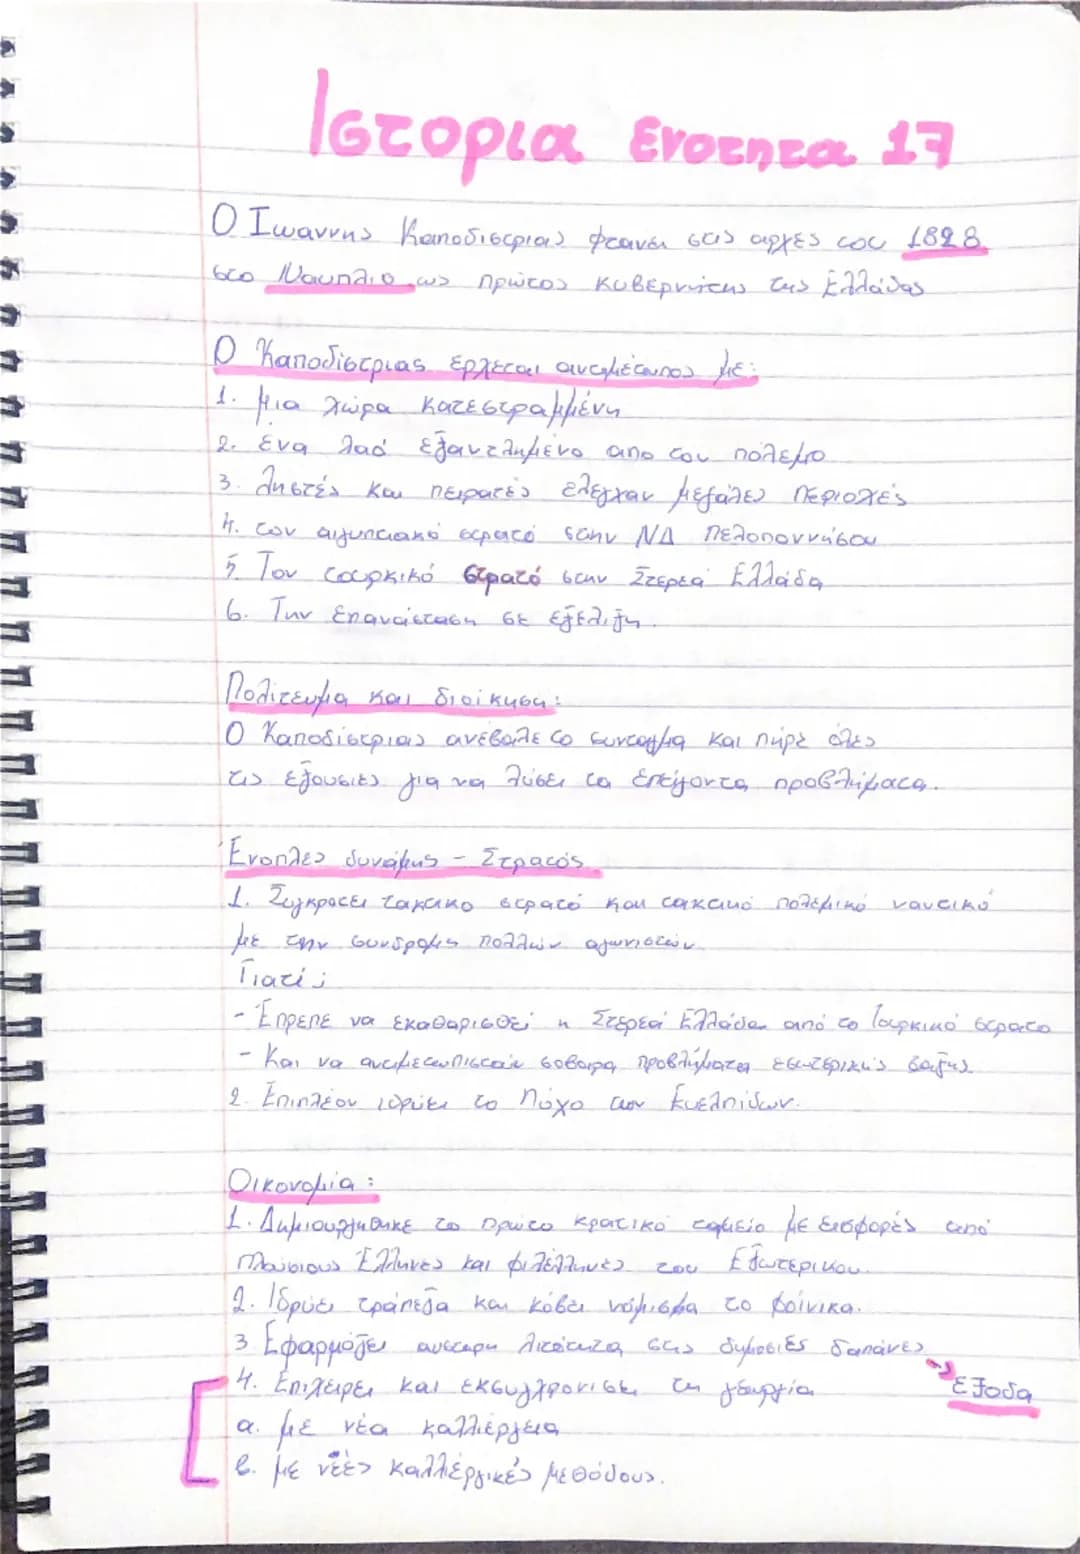 Ιστορια Ενοτητα 17
Ο Ιωαννης Καποδιστριας φτανει στις αρχές του 1828
στο Ναυπλιο ως πρώτος κυβερνήτης της Ελλάδας
Ο Καποδίστριας ερχεται αντιμέτωπος με:
1. μια χώρα κατεστραμμένη
2. ένα λαό εξαντλημένο απο τον πόλεμο
3. ληστές και πειρατές ελεγχαν μεγάλες περιοχές
4. τον αιγυπτιακό στρατό στην ΝΔ Πελοποννήσου
5. Τον τουρκικό στρατό στην Στερεά Ελλάδα
6. Την Επανάσταση σε εξέλιξη.
Πολίτευμα και διοίκηση:
Ο Καποδίστριας ανέβαλε το συνταγμα και πήρε όλες
τις εξουσίες για να λύσει τα επείγοντα προβλήματα.
Ενοπλες δυνάμεις - Στρατός
1. Συγκροτεί τακτικο στρατό και τακτικό πολεμικό ναυτικό
με την συνδρομη πολλών αγωνιστών.
Γιατί;
- Έπρεπε να εκαθαρισθεί η Στερεά Ελλάδα από το Τουρκικό στρατο
- Και να αντιμετωπιστούν σοβαρα προβλήματα εσωτερικής ταξης
2. Επιπλέον ιδρύει το Λόχο των Ευελπίδων.
Οικονομία:
1. Δημιουργηθηκε το πρώτο κρατικό ταμείο με εισφορές από
πλούσιους Έλληνες και φιλέλληνες του Εξωτερικου.
2. Ιδρύει τράπεζα και κόβει νόμισμα το φοίνικα.
3 Εφαρμόζει αυστηρη λιτότητα στις δημοσιές δαπάνες
Εξοδα
4. Επιχειρει και εκσυγχρονισει τη γεωργία
α. με νέα καλλιέργεια
β. με νεές καλλιέργικές μεθόδους.